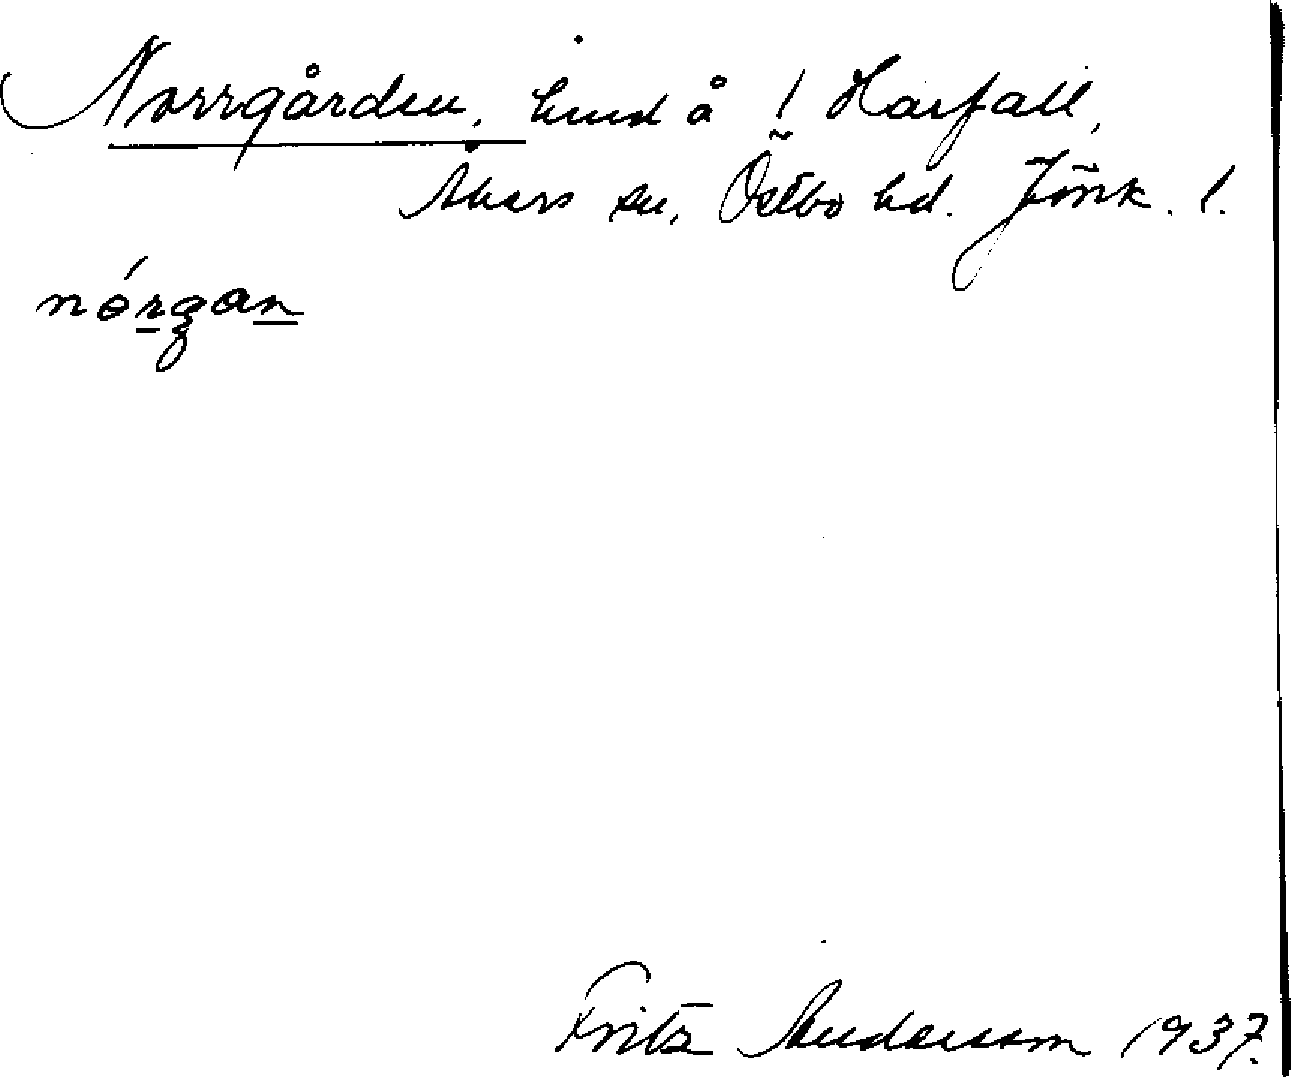 Norrgården, hmd å ! Harfall,
Åkers sn, Östbo hd. Jönk. l.
nórgan
Fritz Andersson 1937.